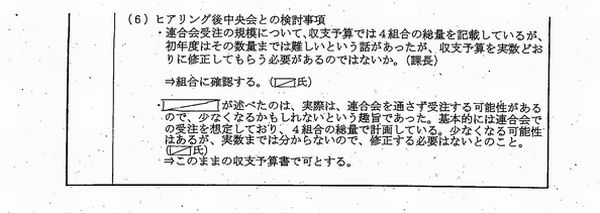 (6)ヒアリング後中央会との検討事項
・連合会受注の規模について、収支予算では4組合の総量を記載しているが、
初年度はその数量までは難しいという話があったが、収支予算を実数どお
りに修正してもらう必要があるのではないか。(課長)
⇒組合に確認する。(氏)
・が述べたのは、実際は、連合会を通さず受注する可能性がある
ので、少なくなるかもしれないという趣旨であった。基本的には連合会で
の受注を想定しており、4組合の総量で計画している。少なくなる可能性
はあるが、実数までは分からないので、修正する必要はないとのこと。
(氏)
⇒このままの収支予算書で可とする。